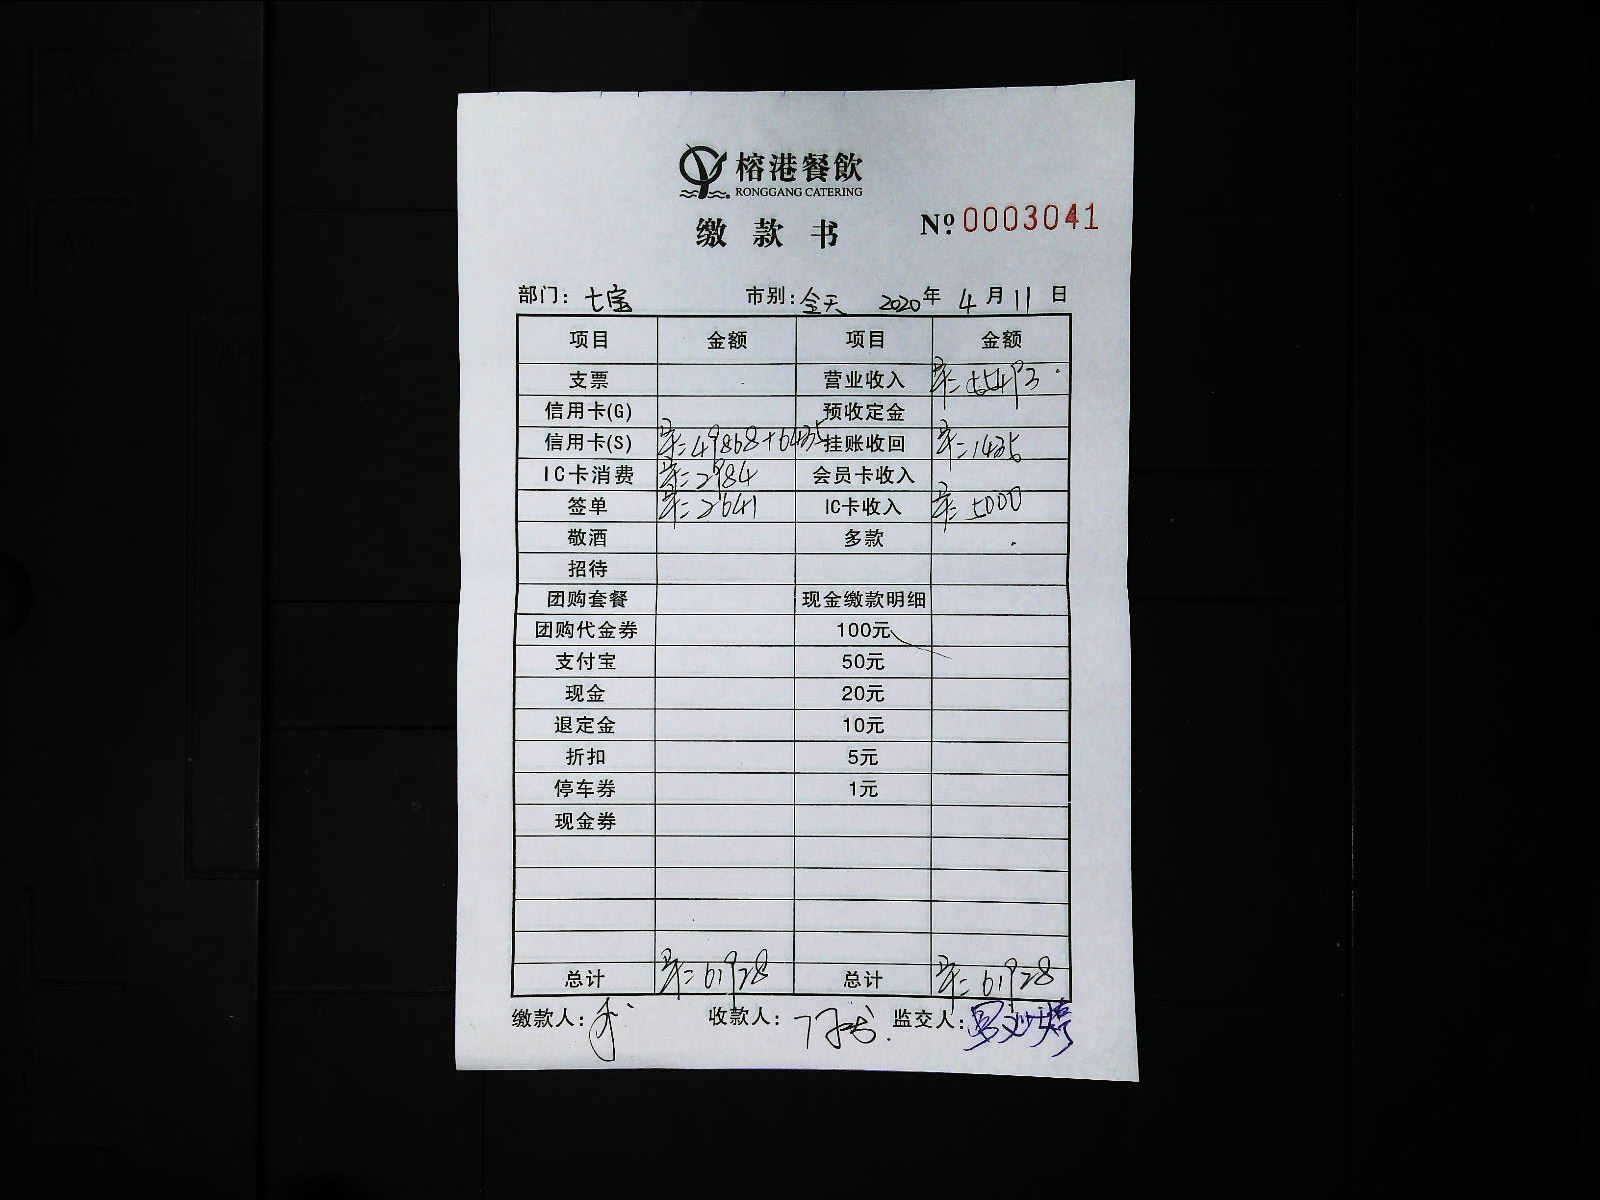 榕港餐飲
RONGGANG CATERING
缴款书 № 0003041
部门: 七宝 市别: 全天 2020年 4月 11日
项目 金额 项目 金额
支票 营业收入 ¥=55493
信用卡(G) 预收定金
信用卡(S) ¥=49868+6435 挂账收回 ¥=1435
IC卡消费 ¥=2984 会员卡收入
签单 ¥=2641 IC卡收入 ¥=5000
敬酒 多款
招待
团购套餐 现金缴款明细
团购代金券 100元
支付宝 50元
现金 20元
退定金 10元
折扣 5元
停车券 1元
现金券
总计 ¥=61928 总计 ¥=61928
缴款人: 收款人: 监交人: